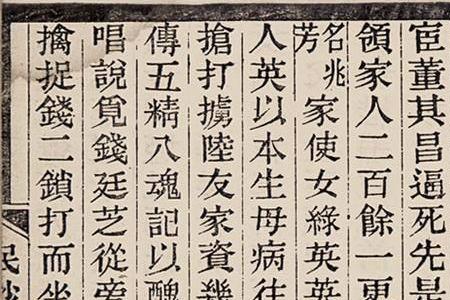 宦董其昌逼死先是
領家人二百餘一更
名兆芳家使女綠英英
人英以本生母病往
搶打擄陸友家資幾
傳五精八魂記以醜
唱說覓錢廷芝從旁
擒捉錢二鎖打而坐
民